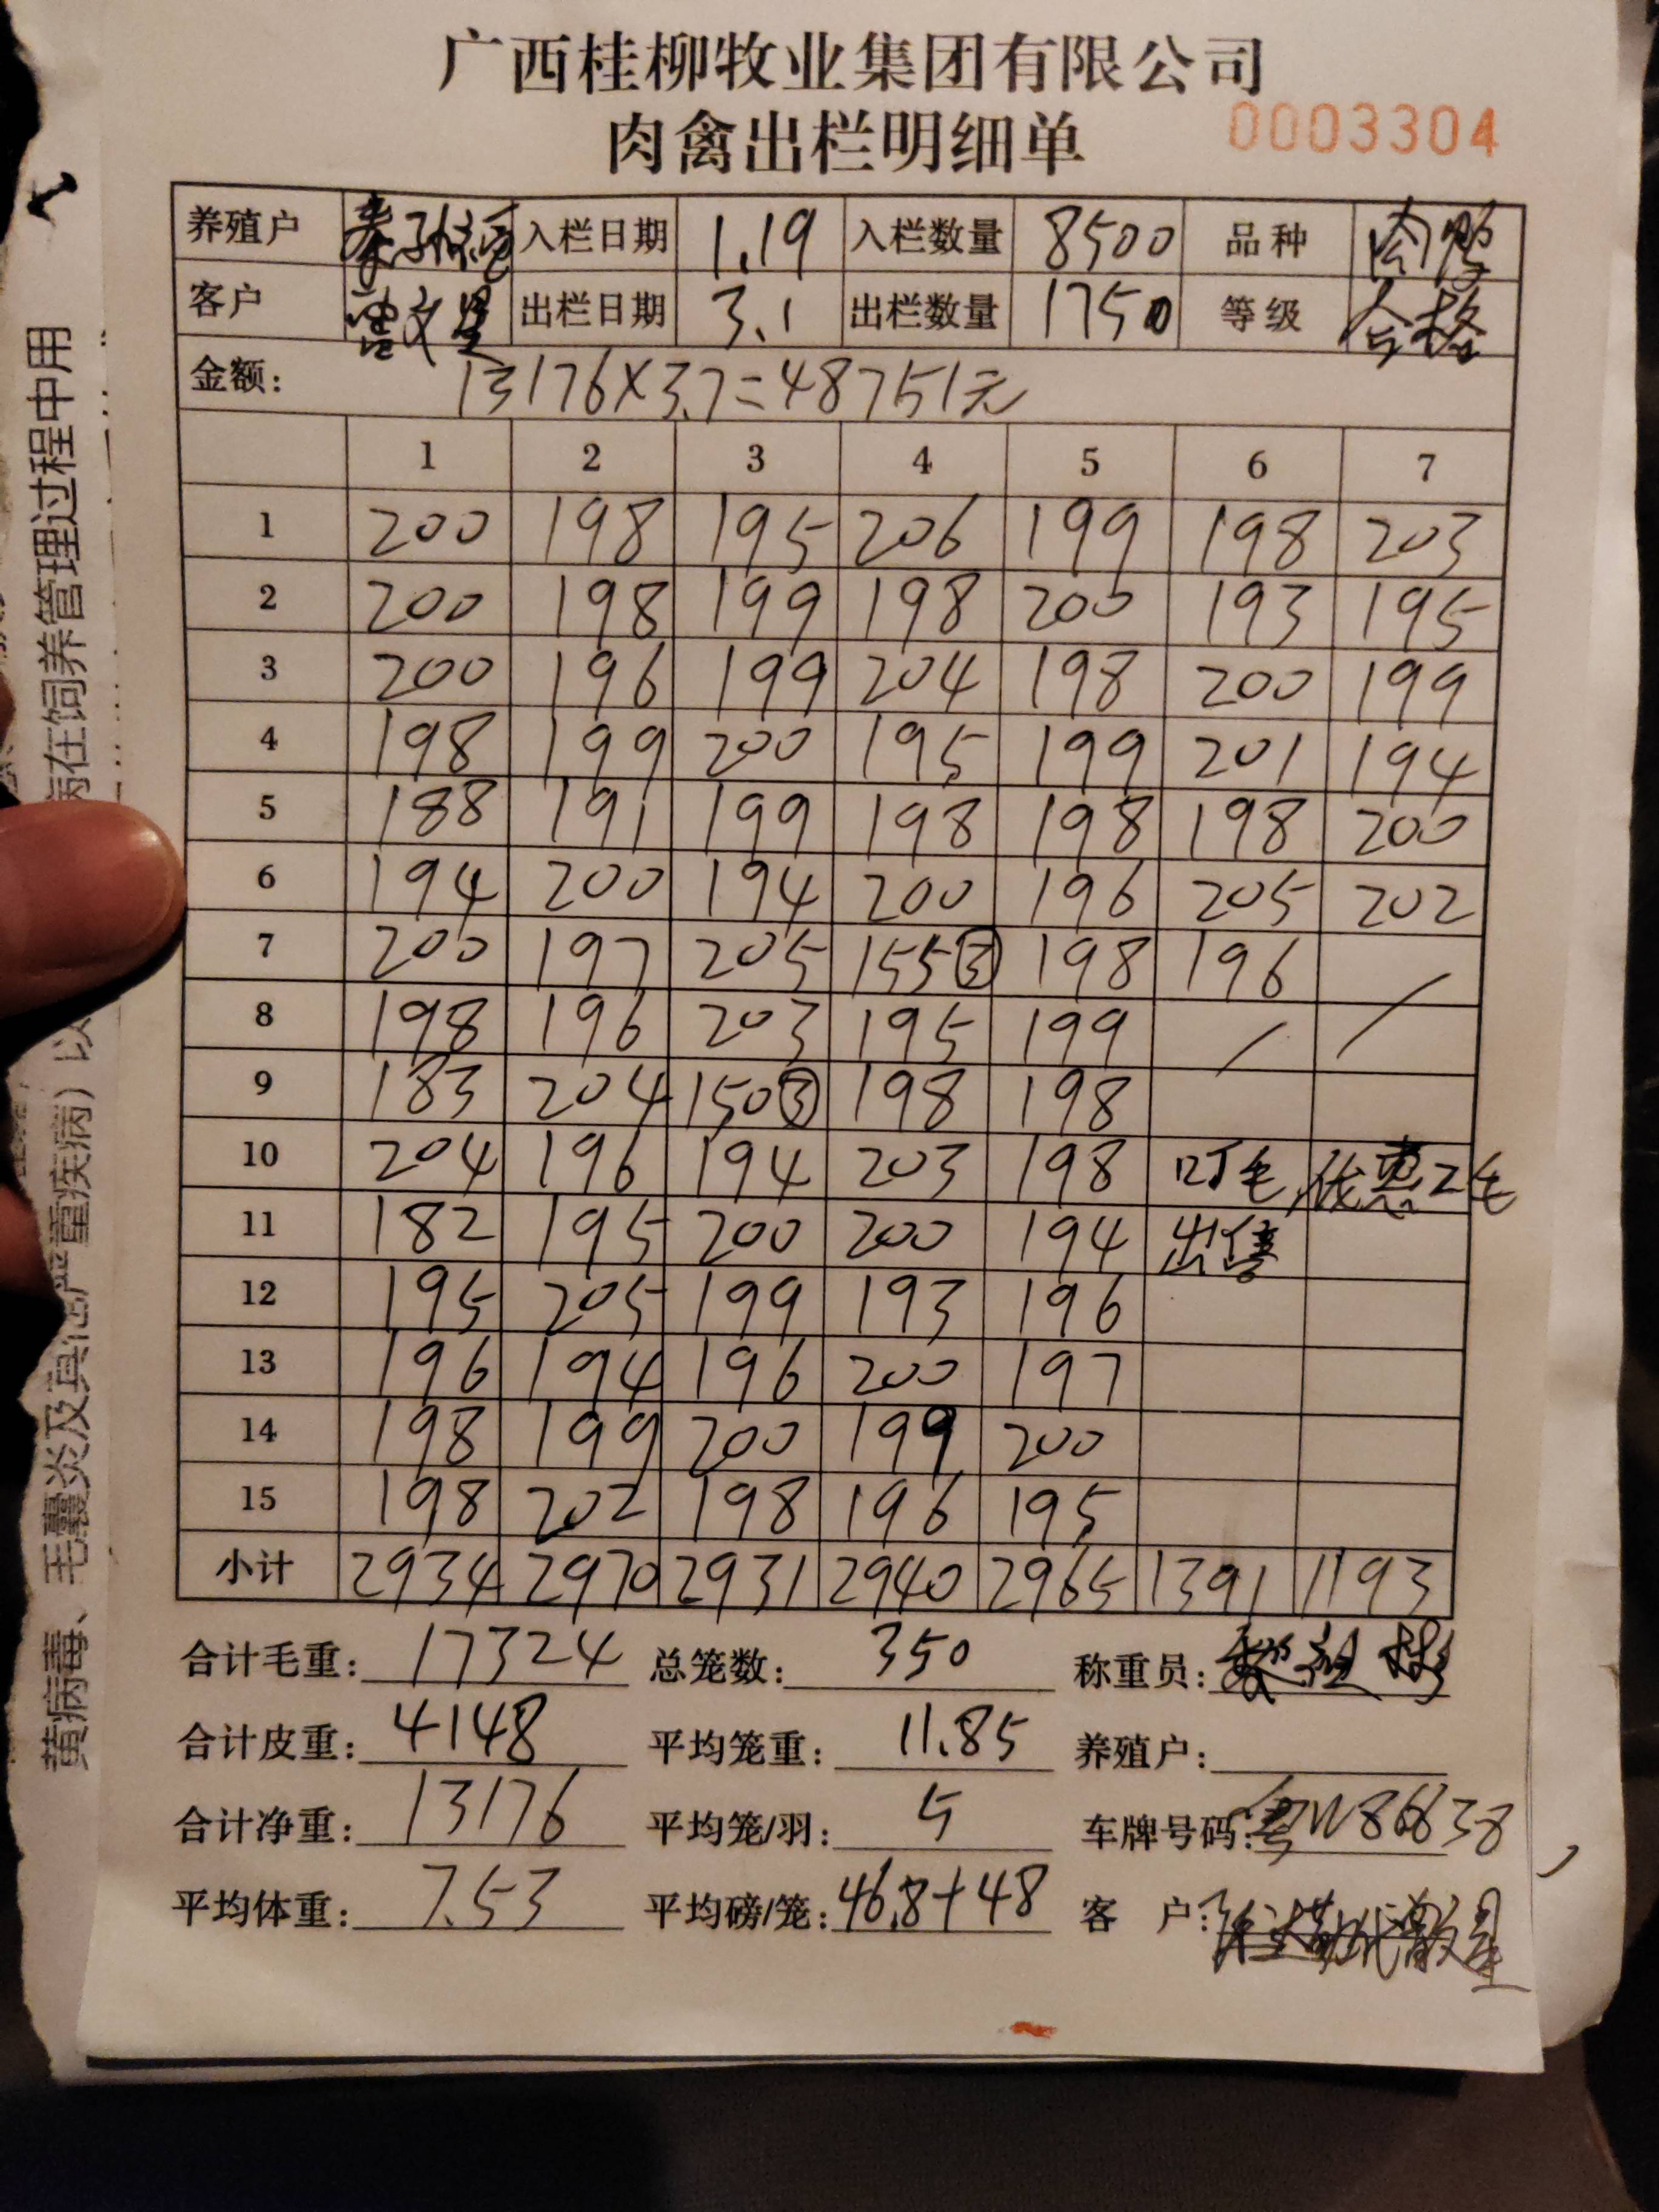 广西桂柳牧业集团有限公司
肉禽出栏明细单 0003304
养殖户 入栏日期 1.19 入栏数量 8500 品种 肉鸭
客户 出栏日期 3.1 出栏数量 1750 等级 合格
金额: 13176×3.7=48751元
1 2 3 4 5 6 7
1 200 198 195 206 199 198 203
2 200 198 199 198 200 193 195
3 200 196 199 204 198 200 199
4 198 199 200 195 199 201 194
5 188 191 199 198 198 198 200
6 194 200 194 200 196 205 202
7 200 197 205 155③ 198 196 /
8 198 196 203 195 199 / /
9 183 204 150③ 198 198
10 204 196 194 203 198 叮毛 优惠2毛
11 182 195 200 200 194 出售
12 195 205 199 193 196
13 196 194 196 200 197
14 198 199 200 199 200
15 198 202 198 196 195
小计 2934 2970 2931 2940 2965 1391 1193
合计毛重: 17324 总笼数: 350 称重员:
合计皮重: 4148 平均笼重: 11.85 养殖户:
合计净重: 13176 平均笼/羽: 5 车牌号码: 粤W86638
平均体重: 7.53 平均磅/笼: 46.8+48 客 户:
黄病毒、毛囊炎及其他严重疾病）以
病在饲养管理过程中用